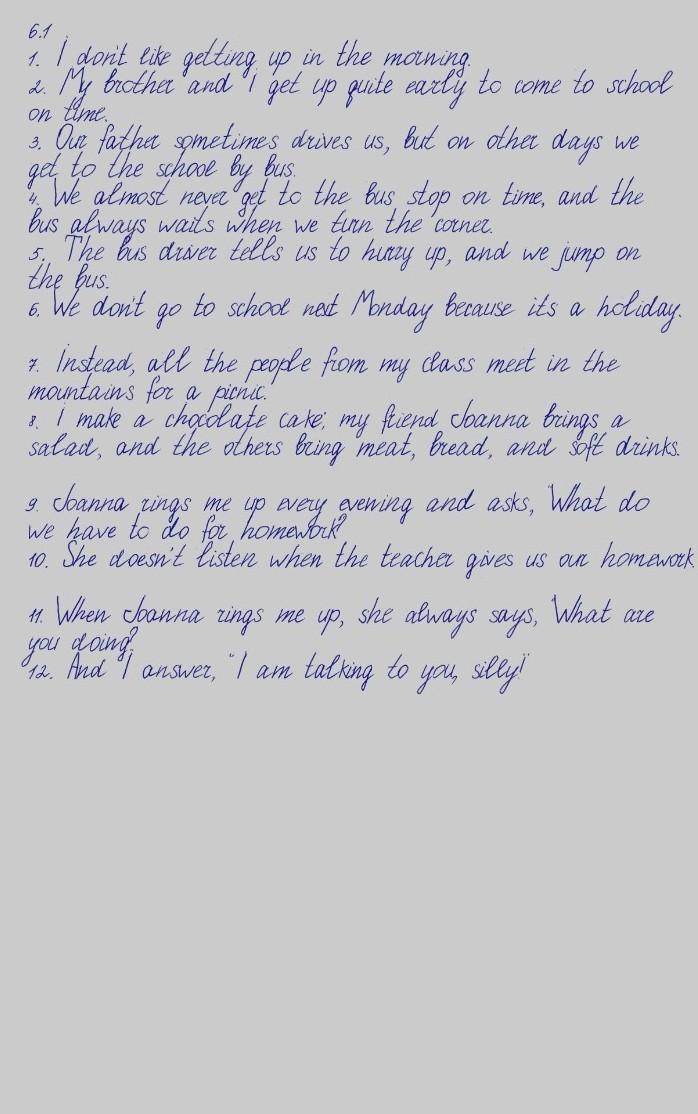 6.1
1. I don't like getting up in the morning.
2. My brother and I get up quite early to come to school
on time.
3. Our father sometimes drives us, but on other days we
get to the school by bus.
4. We almost never get to the bus stop on time, and the
bus always waits when we turn the corner.
5. The bus driver tells us to hurry up, and we jump on
the bus.
6. We don't go to school next Monday because its a holiday.
7. Instead, all the people from my class meet in the
mountains for a picnic.
8. I make a chocolate cake; my friend Joanna brings a
salad, and the others bring meat, bread, and soft drinks.
9. Joanna rings me up every evening and asks, "What do
we have to do for homework?"
10. She doesn't listen when the teacher gives us our homework.
11. When Joanna rings me up, she always says, "What are
you doing?"
12. And I answer, "I am talking to you, silly!"